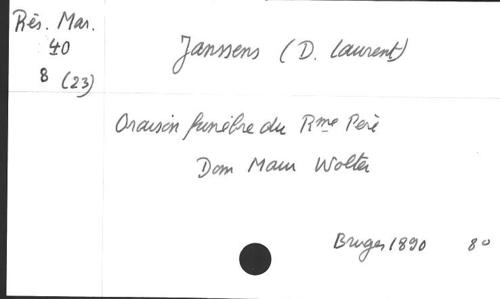 Rés. Mar.
40
8 (23)
Janssens (D. Laurent)
Oraison funèbre du Rme Père
Dom Maur Wolter
Bruges 1890 8o